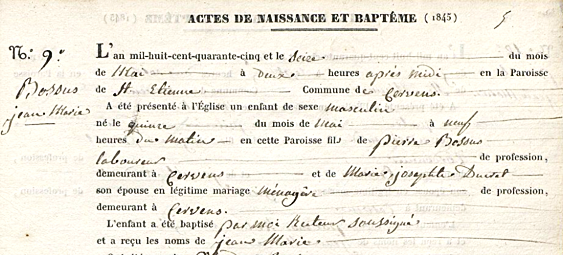 ACTES DE NAISSANCE ET BAPTÊME (1845) 5
N.º 9.º
Bossus
jean Marie
L'an mil-huit-cent-quarante-cinq et le seize du mois
de Mai à deux heures après midi en la Paroisse
de St Etienne Commune de Cervens.
A été présenté à l'Église un enfant de sexe masculin
né le quinze du mois de mai à neuf
heures du matin en cette Paroisse fils de pierre Bossus
laboureur de profession,
demeurant à Cervens et de Marie josephte
son épouse en légitime mariage ménagère de profession,
demeurant à Cervens.
L'enfant a été baptisé par moi Recteur soussigné
et a reçu les noms de jean Marie